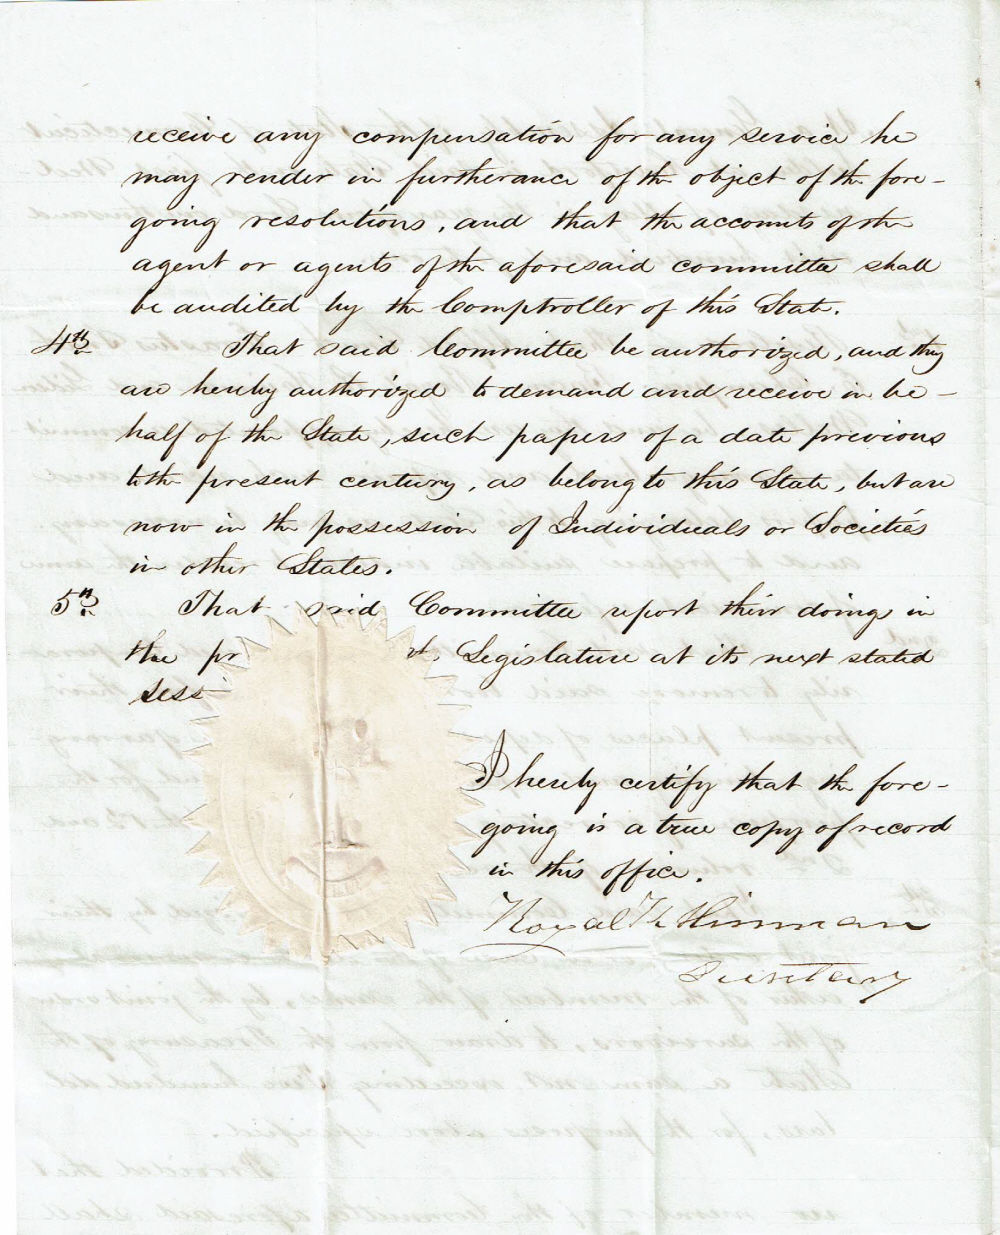 receive any compensation for any service he
may render in furtherance of the object of the fore-
going resolutions, and that the accounts of the
agent or agents of the aforesaid committee shall
be audited by the Comptroller of this State.
4th That said Committee be authorized, and they
are hereby authorized to demand and receive in be-
half of the State, such papers of a date previous
to the present century, as belong to this State, but are
now in the possession of Individuals or Societies
in other States.
5th That said Committee report their doings in
the pr t. Legislature at its next stated
sess
I hereby certify that the fore-
going is a true copy of record
in this office.
Royal R. Hinman
Secretary